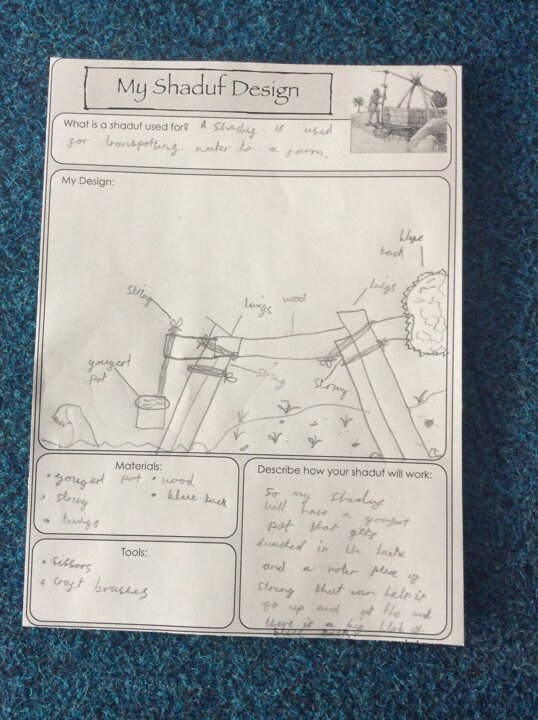 My Shaduf Design
What is a shaduf used for? A Shaduf is used
for transpotting water to a farm.
My Design:
blue
tack
String
twigs
wood
twigs
yougert
pot
string
String
Materials:
• yougert pot • wood
• String • blue tack
• twigs
Tools:
• sissors
• craft brushes
Describe how your shaduf will work:
So my shaduf
will have a yougort
pot that gets
duncked in the lake
and a noter piece of
string that can help it
go up and at the end
there is a big blob of